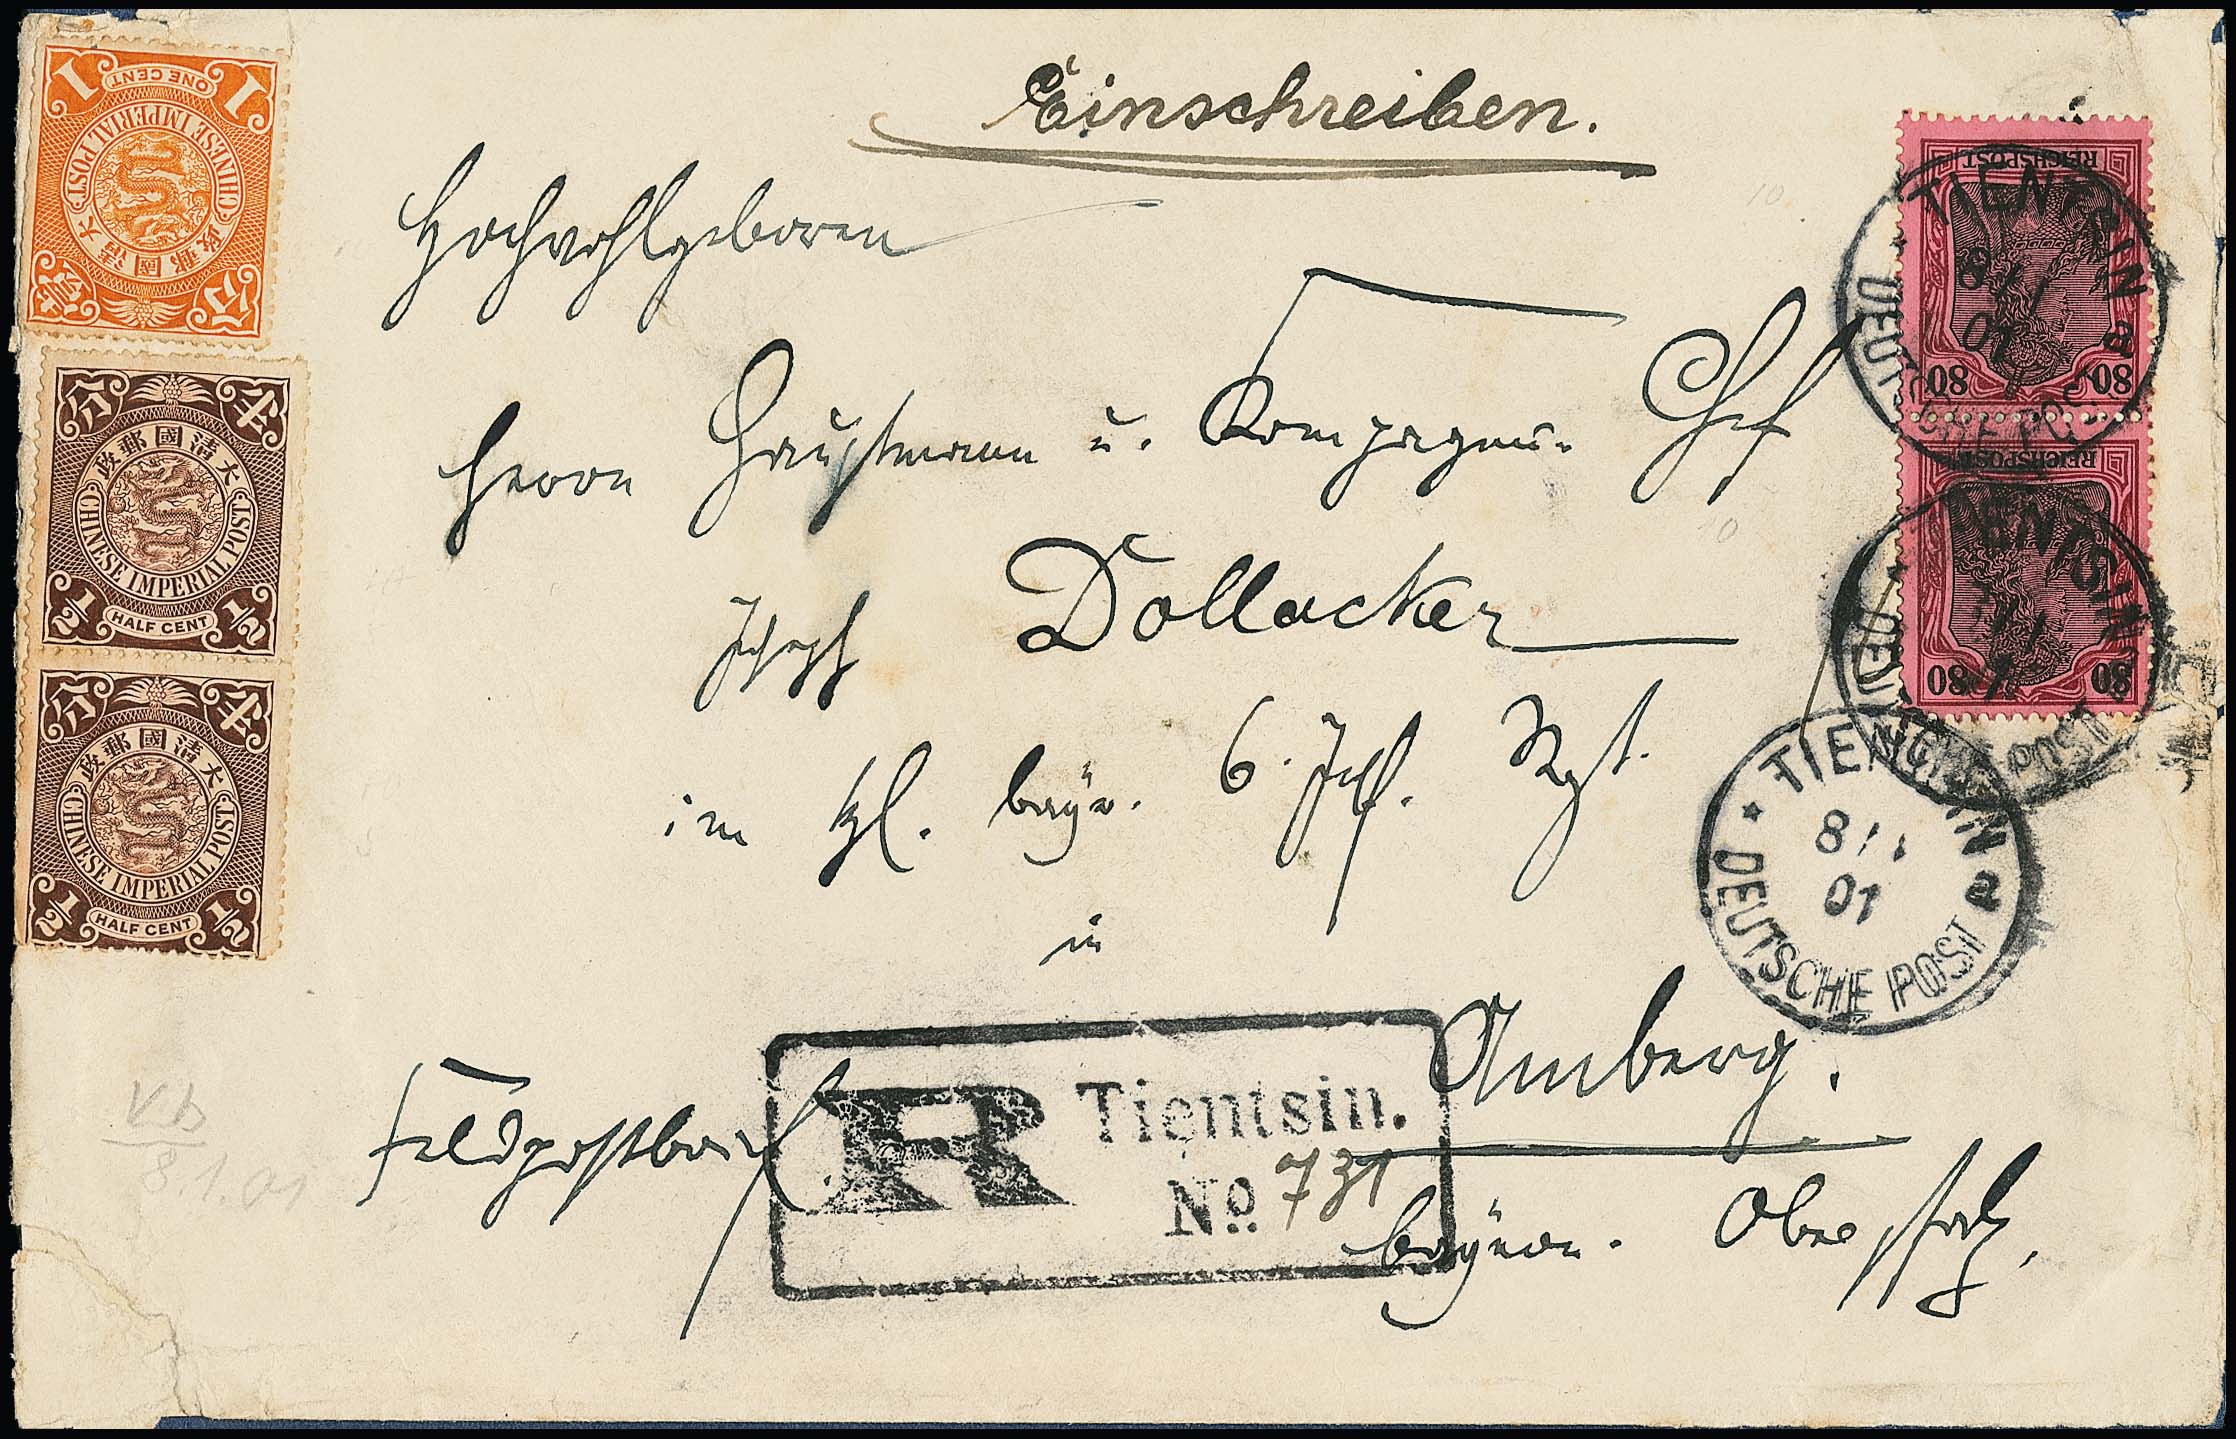 Einschreiben.
Hochwohlgeboren
Herrn Hauptmann u. Kompagnie- Chef
Joseph Dollacker
im kgl. bayr. 6. Inf. Rgt.
in
Amberg.
bayer. Oberpfalz,
Feldpostbrief.
R Tientsin.
No. 731
V.b
8.1.01
1 ONE CENT 1
CHINESE IMPERIAL POST
大清國郵政
壹 分
半 分
大清國郵政
CHINESE IMPERIAL POST
1/2 HALF CENT 1/2
半 分
大清國郵政
CHINESE IMPERIAL POST
1/2 HALF CENT 1/2
REICHSPOST
80 80
REICHSPOST
80 80
TIENTSIN a
8/1
01
DEUTSCHE POST
TIENTSIN
DEUTSCHE POST
TIENTSIN a
8/1
01
DEUTSCHE POST